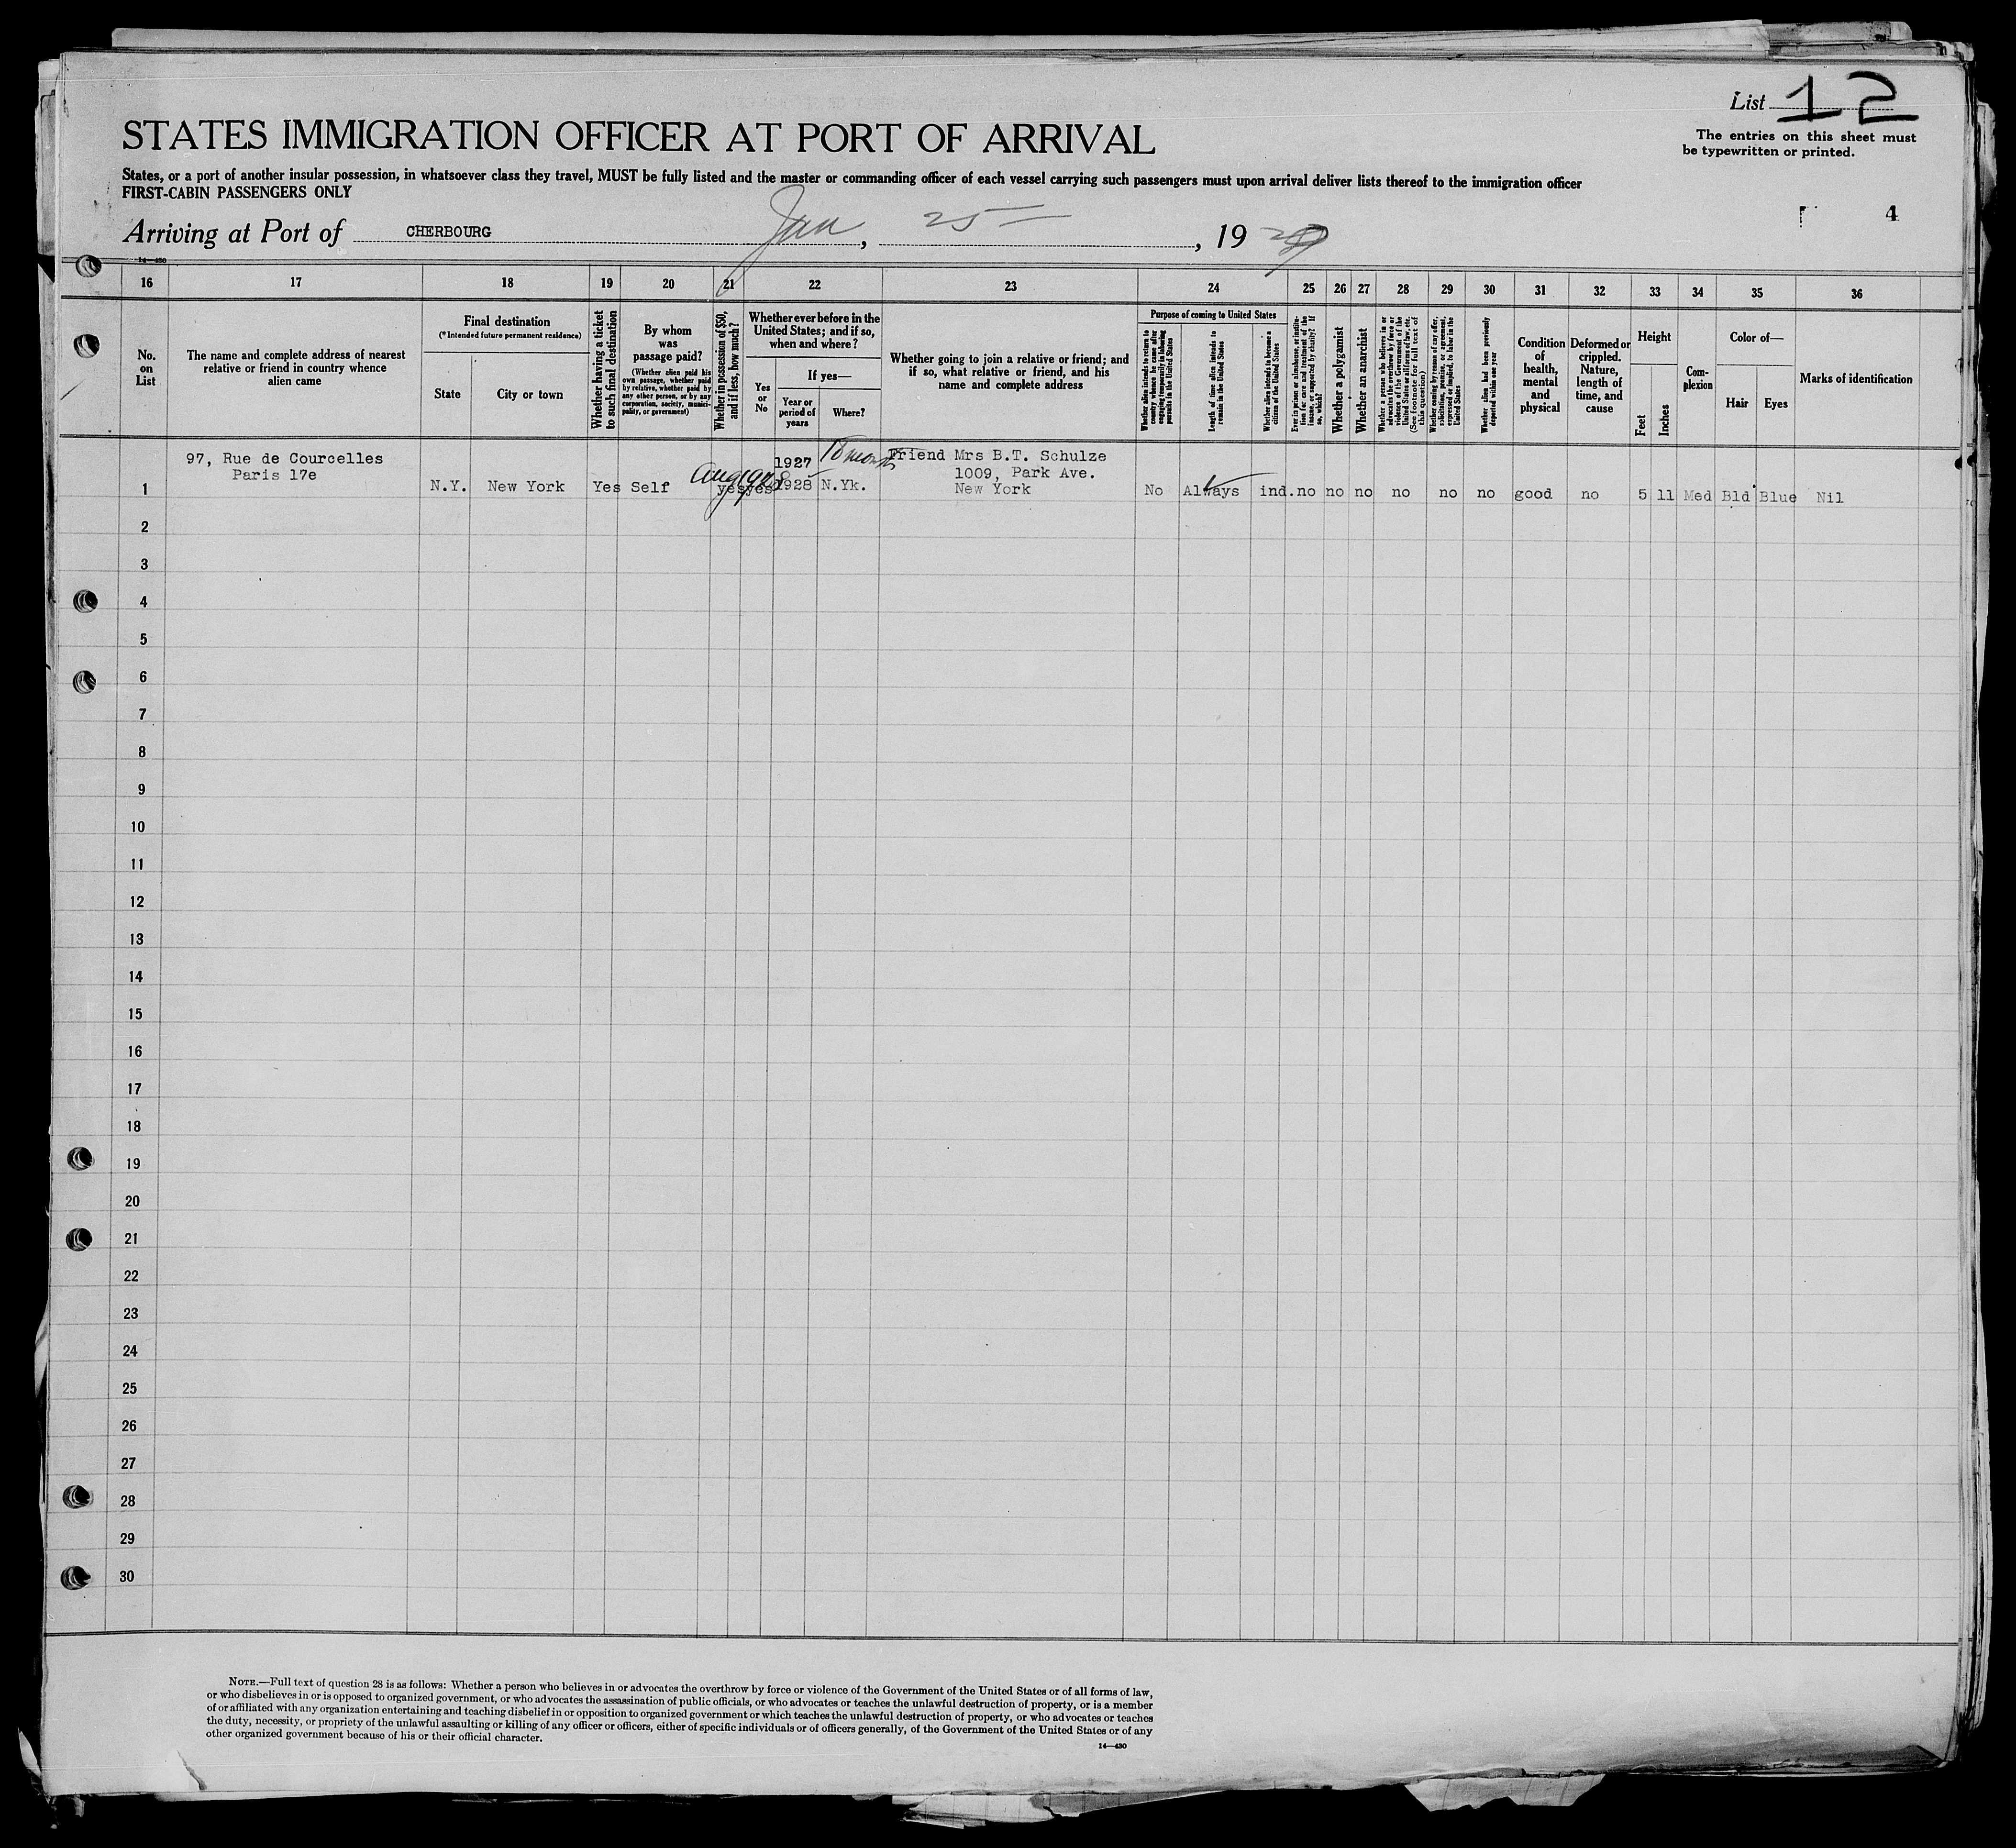 List 12
The entries on this sheet must
be typewritten or printed.
STATES IMMIGRATION OFFICER AT PORT OF ARRIVAL
States, or a port of another insular possession, in whatsoever class they travel, MUST be fully listed and the master or commanding officer of each vessel carrying such passengers must upon arrival deliver lists thereof to the immigration officer
FIRST-CABIN PASSENGERS ONLY
4
Arriving at Port of CHERBOURG Jan , 25 , 19
14—430
16 17 18 19 20 21 22 23 24 25 26 27 28 29 30 31 32 33 34 35 36
No.
on
List
The name and complete address of nearest
relative or friend in country whence
alien came
Final destination
(*Intended future permanent residence)
State
City or town
Whether having a ticket
to such final destination
By whom
was
passage paid?
(Whether alien paid his
own passage, whether paid
by relative, whether paid by
any other person, or by any
corporation, society, munici-
pality, or government)
Whether in possession of $50,
and if less, how much?
Whether ever before in the
United States; and if so,
when and where?
Yes
or
No
If yes—
Year or
period of
years
Where?
Whether going to join a relative or friend; and
if so, what relative or friend, and his
name and complete address
Purpose of coming to United States
Whether alien intends to return to
country whence he came after
engaging temporarily in laboring
pursuits in the United States
Length of time alien intends to
remain in the United States
Whether alien intends to become a
citizen of the United States
Ever in prison or almshouse, or institu-
tion for care and treatment of the
insane, or supported by charity? If
so, which?
Whether a polygamist
Whether an anarchist
Whether a person who believes in or
advocates the overthrow by force or
violence of the Government of the
United States or all forms of law, etc.
(See footnote for full text of
this question)
Whether coming by reason of any offer,
solicitation, promise, or agreement,
expressed or implied, to labor in the
United States
Whether alien had been previously
deported within one year
Condition
of
health,
mental
and
physical
Deformed or
crippled.
Nature,
length of
time, and
cause
Height
Feet
Inches
Com-
plexion
Color of—
Hair
Eyes
Marks of identification
97, Rue de Courcelles
Paris 17e
1 N.Y. New York Yes Self yes yes 1928 N.Yk.
Aug 1928
1927 18 months
Friend Mrs B.T. Schulze
1009, Park Ave.
New York
No Always ind. no no no no no no good no 5 11 Med Bld Blue Nil
2
3
4
5
6
7
8
9
10
11
12
13
14
15
16
17
18
19
20
21
22
23
24
25
26
27
28
29
30
NOTE.—Full text of question 28 is as follows: Whether a person who believes in or advocates the overthrow by force or violence of the Government of the United States or of all forms of law,
or who disbelieves in or is opposed to organized government, or who advocates the assassination of public officials, or who advocates or teaches the unlawful destruction of property, or is a member
of or affiliated with any organization entertaining and teaching disbelief in or opposition to organized government or which teaches the unlawful destruction of property, or who advocates or teaches
the duty, necessity, or propriety of the unlawful assaulting or killing of any officer or officers, either of specific individuals or of officers generally, of the Government of the United States or of any
other organized government because of his or their official character.
14—430